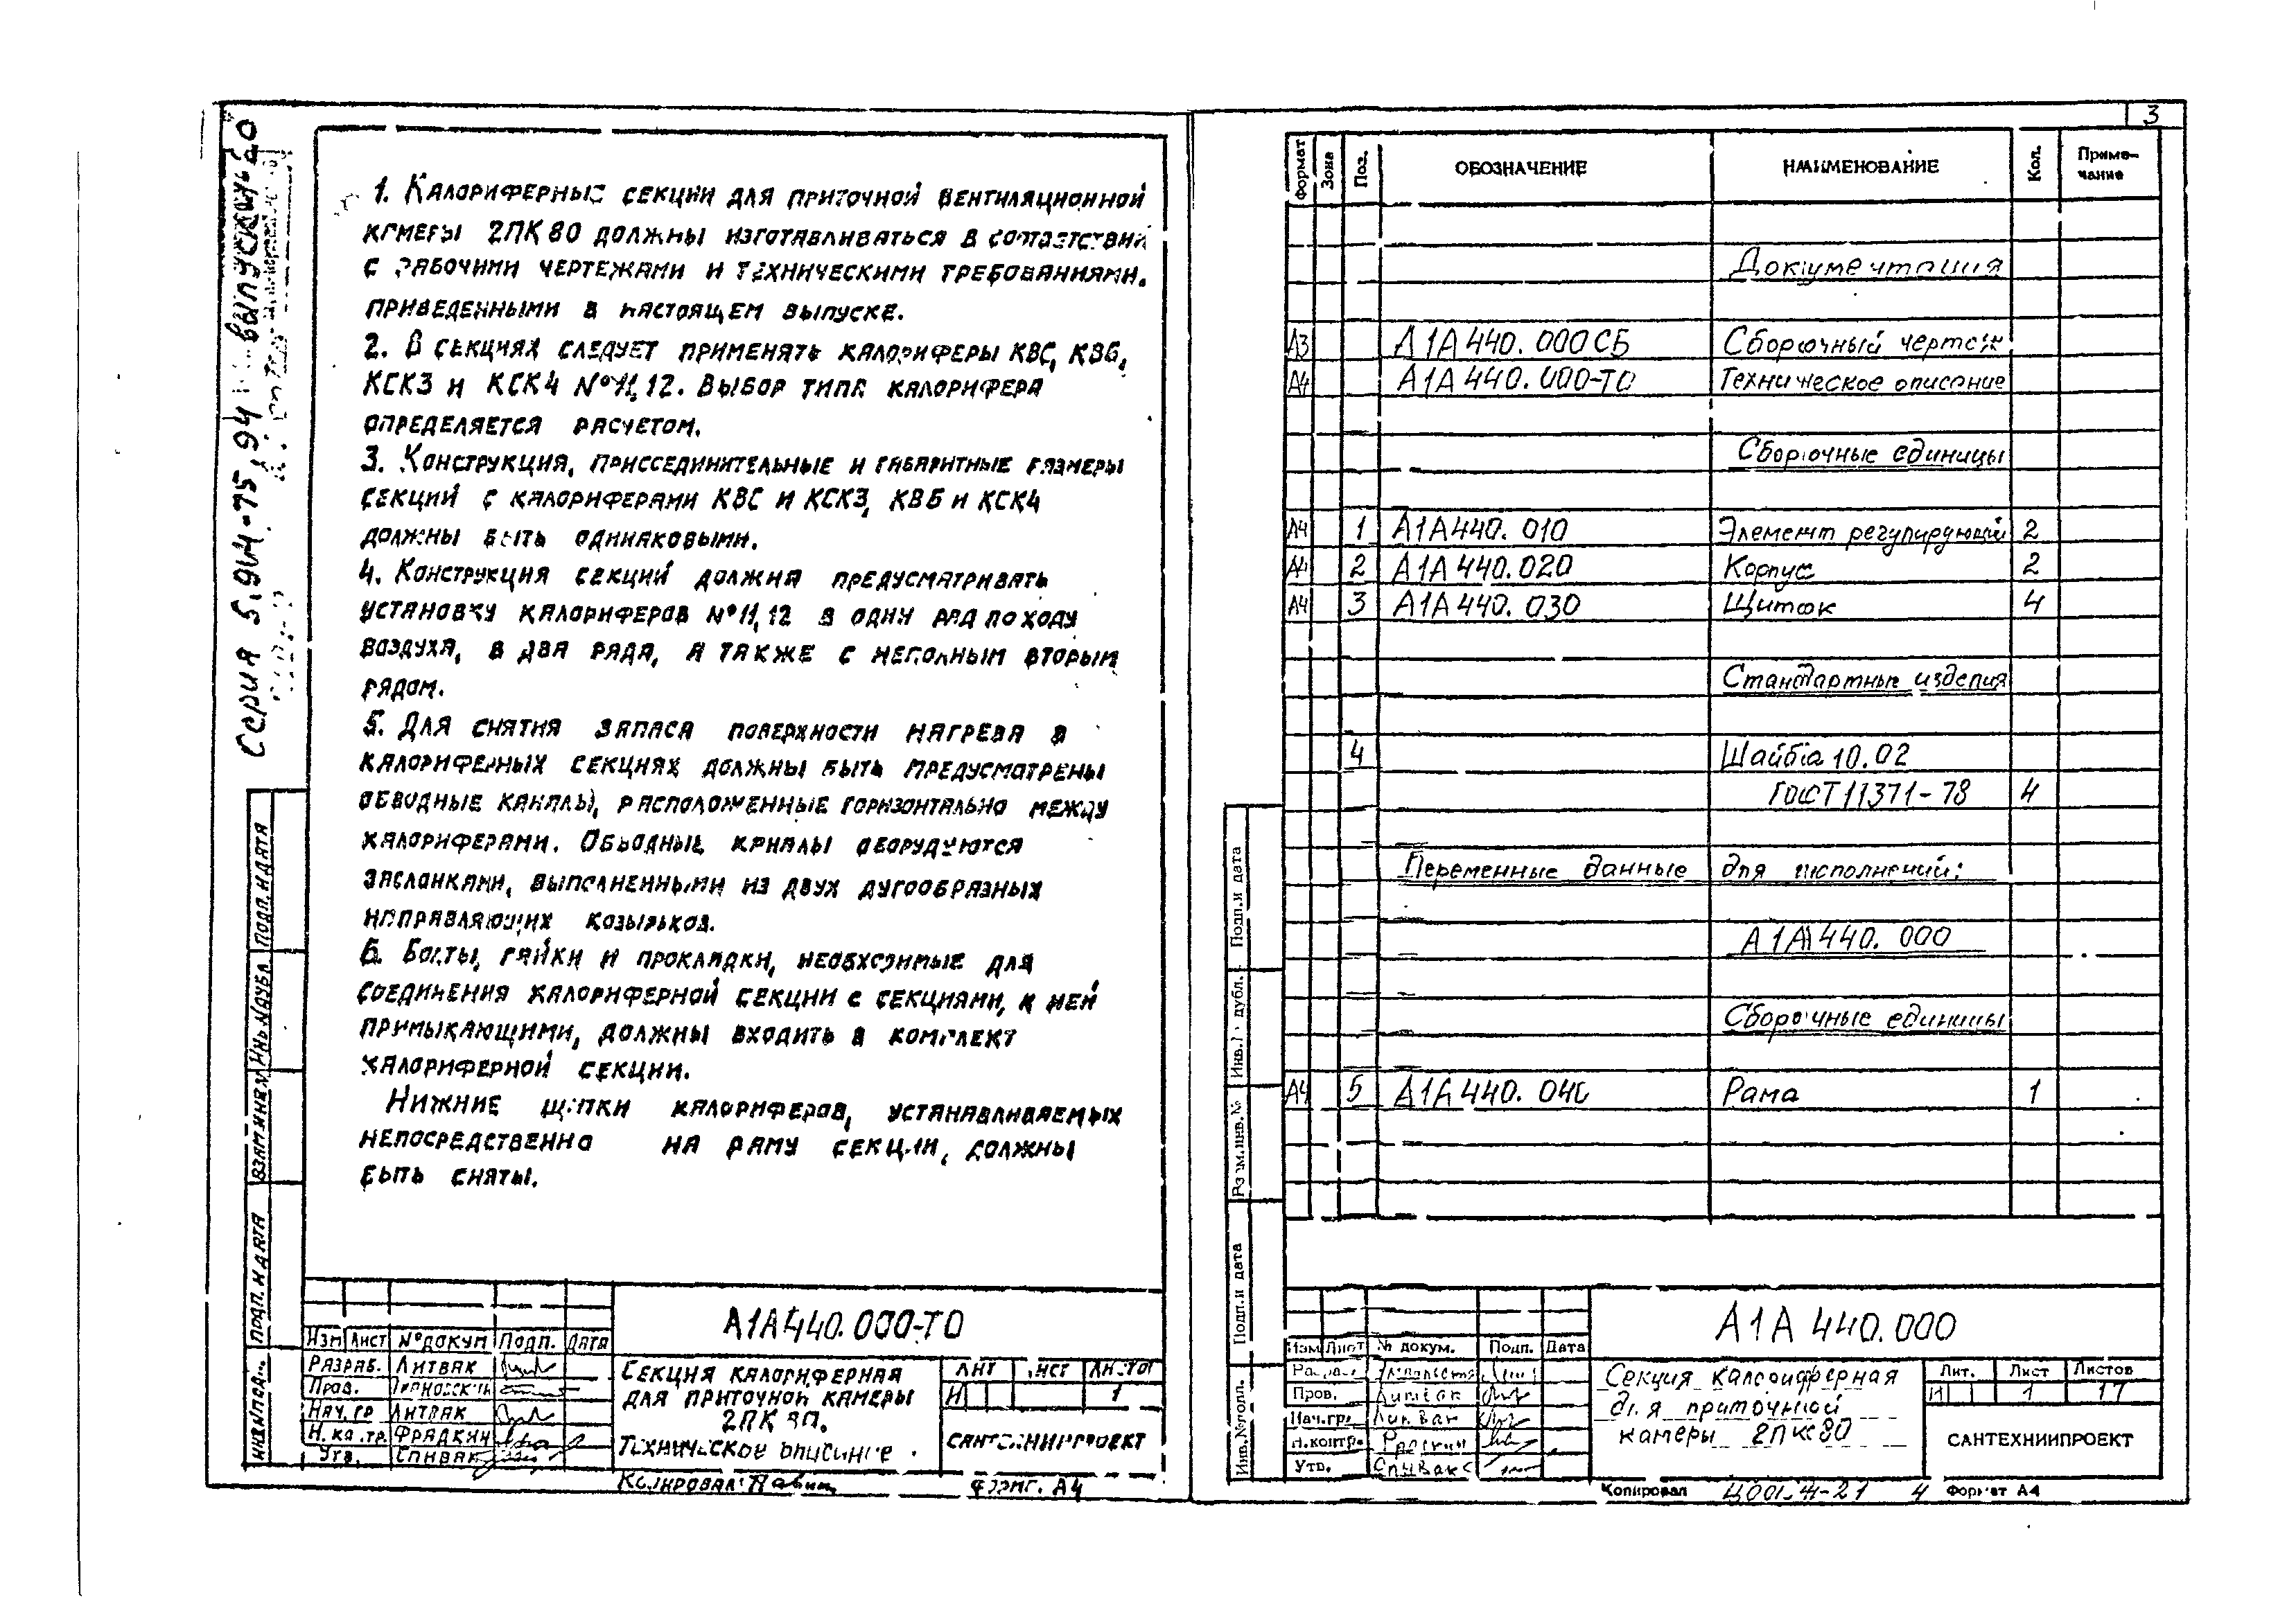 Серия 5.904-75.94 выпуск 2.0
1. Калориферные секции для приточной вентиляционной
камеры 2ПК80 должны изготавливаться в соответствии
с рабочими чертежами и техническими требованиями,
приведенными в настоящем выпуске.
2. В секциях следует применять калориферы КВС, КВБ,
КСК3 и КСК4 №11,12. Выбор типа калорифера
определяется расчетом.
3. Конструкция, присоединительные и габаритные размеры
секций с калориферами КВС и КСК3, КВБ и КСК4
должны быть одинаковыми.
4. Конструкция секций должна предусматривать
установку калориферов №11,12 в один ряд по ходу
воздуха, в два ряда, а также с неполным вторым
рядом.
5. Для снятия запаса поверхности нагрева в
калориферных секциях должны быть предусмотрены
обводные каналы, расположенные горизонтально между
калориферами. Обводные каналы оборудуются
заслонками, выполненными из двух дугообразных
направляющих козырьков.
6. Болты, гайки и прокладки, необходимые для
соединения калориферной секции с секциями, к ней
примыкающими, должны входить в комплект
калориферной секции.
Нижние щитки калориферов, устанавливаемых
непосредственно на раму секции, должны
быть сняты.
Подп. и дата
Инв. № дубл.
Взам. инв. №
Подп. и дата
Инв. № подл.
А1А440.000-ТО
Изм Лист № докум Подп. Дата
Разраб. Литвак
Пров.
Нач. гр Литвак
Н. контр. Фрадкин
Утв. Спивак
Секция калориферная
для приточной камеры
2ПК 80.
Техническое описание
Лит Лист Листов
И 1
Сантехниипроект
Копировал: Формат А4
3
Формат Зона Поз. ОБОЗНАЧЕНИЕ НАИМЕНОВАНИЕ Кол. Приме-
чание
Документация
А3 А1А440.000СБ Сборочный чертеж
А4 А1А440.000-ТО Техническое описание
Сборочные единицы
А4 1 А1А440.010 Элемент регулирующий 2
А4 2 А1А440.020 Корпус 2
А4 3 А1А440.030 Щиток 4
Стандартные изделия
4 Шайба 10.02
ГОСТ 11371-78 4
Переменные данные для исполнений:
А1А440.000
Сборочные единицы
А4 5 А1А440.040 Рама 1
Подп. и дата
Инв. № дубл.
Взам. инв. №
Подп. и дата
Инв. № подл.
А1А 440.000
Изм Лист № докум. Подп. Дата
Разраб.
Пров. Литвак
Нач. гр. Литвак
Н. контр. Фрадкин
Утв. Спивак
Секция калориферная
для приточной
камеры 2ПК80
Лит. Лист Листов
И 1 17
САНТЕХНИИПРОЕКТ
Копировал 4 Формат А4